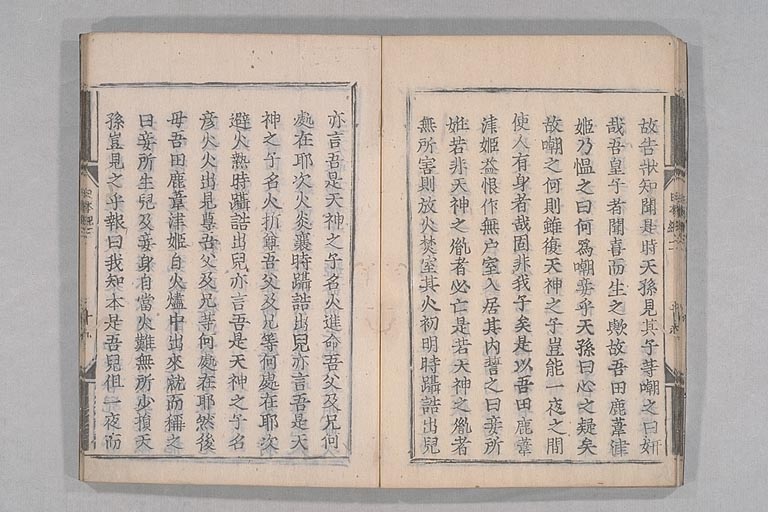 故告狀知聞是時天孫見其子等嘲之曰姸
哉吾皇子者聞喜而生之歟故吾田鹿葦津
姬乃慍之曰何爲嘲妾乎天孫曰心之疑矣
故嘲之何則雖復天神之子豈能一夜之間
使人有身者哉固非我子矣是以吾田鹿葦
津姬益恨作無戶室入居其內誓之曰妾所
姙若非天神之胤者必亡是若天神之胤者
無所害則放火焚室其火初明時躡誥出兒
亦言吾是天神之子名火進命吾父及兄何
處在耶次火炎襄時躡誥出兒亦言吾是天
神之子名火折尊吾父及兄等何處在耶次
避火熱時躡誥出兒亦言吾是天神之子名
彥火火出見尊吾父及兄等何處在耶然後
母吾田鹿葦津姬自火燼中出來就而稱之
曰妾所生兒及妾身自當火難無所少損天
孫豈見之乎報曰我知本是吾兒但一夜而